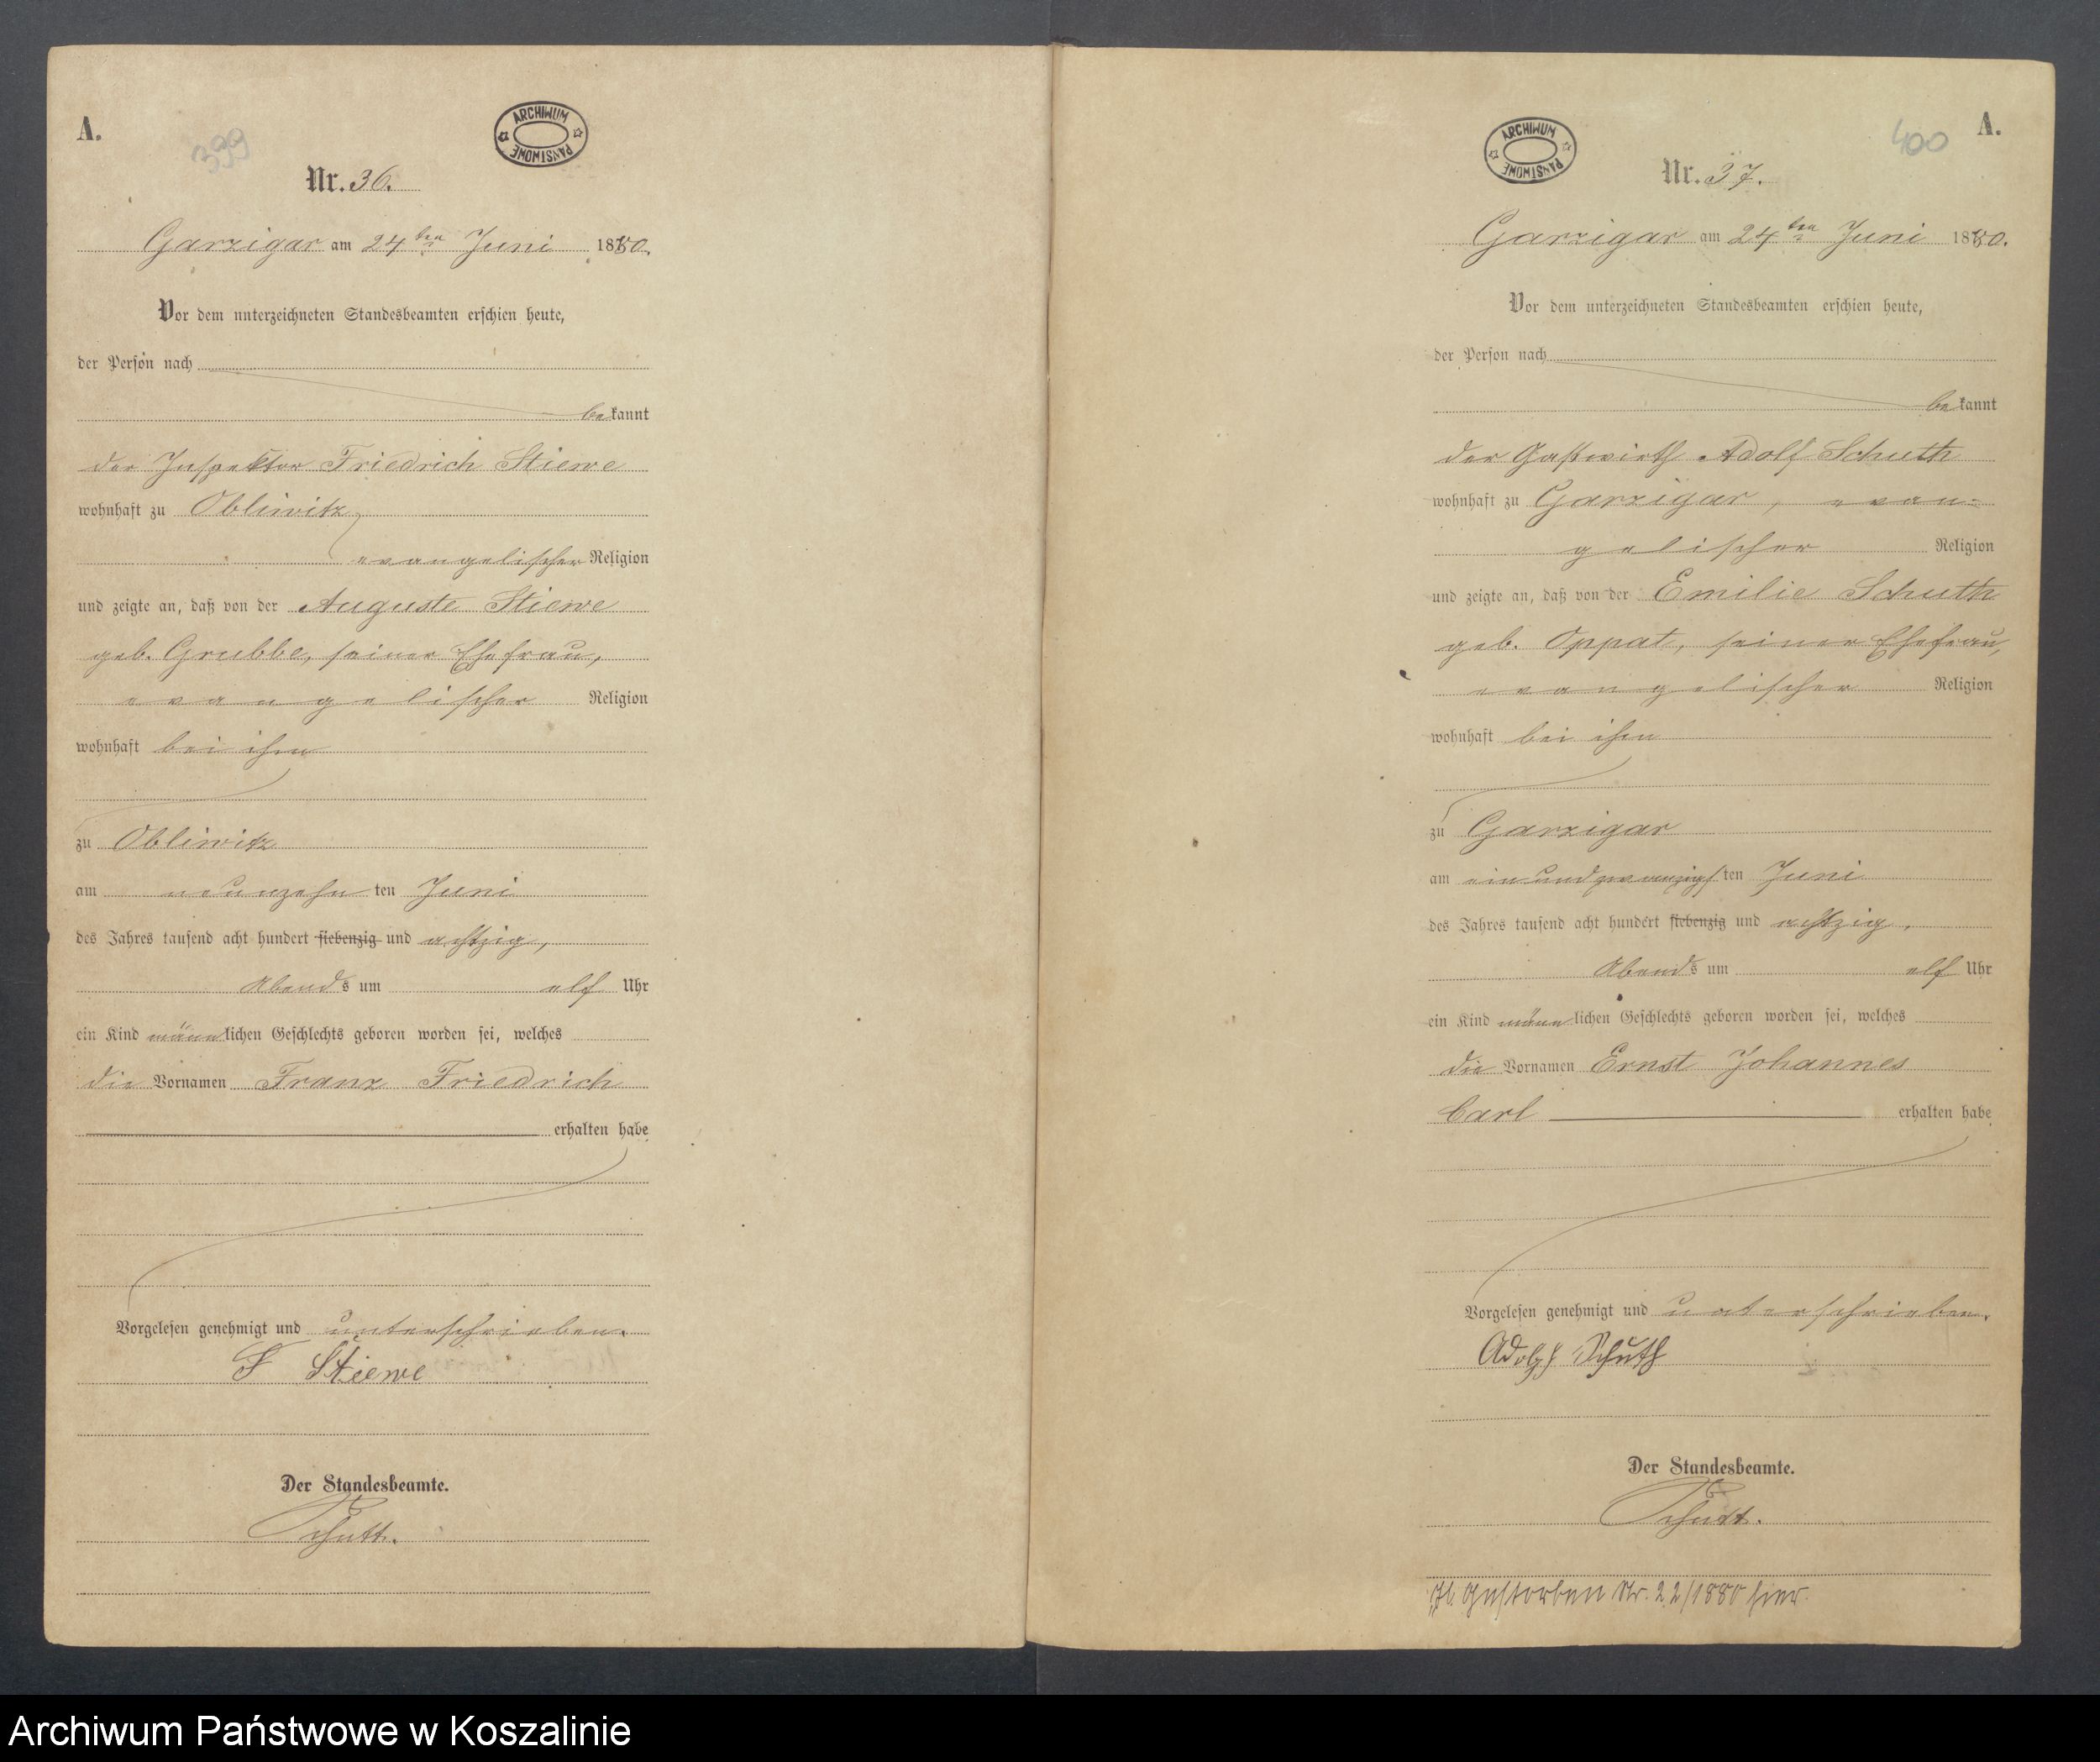 A.
399
ARCHIWUM PAŃSTWOWE
Nr. 36.
Garzigar am 24ten Juni 1880.
Vor dem unterzeichneten Standesbeamten erschien heute,
der Person nach
bekannt
der Inspektor Friedrich Stiewe
wohnhaft zu Obliwitz,
evangelischer Religion
und zeigte an, daß von der Auguste Stiewe
geb. Grubbe, seiner Ehefrau,
evangelischer Religion
wohnhaft bei ihm
zu Obliwitz
am neunzehnten Juni
des Jahres tausend acht hundert siebenzig und achtzig,
Abends um elf Uhr
ein Kind männlichen Geschlechts geboren worden sei, welches
die Vornamen Franz Friedrich
erhalten habe
Vorgelesen genehmigt und unterschrieben.
F Stiewe
Der Standesbeamte.
Schutt.
400
A.
ARCHIWUM PAŃSTWOWE
Nr. 37.
Garzigar am 24ten Juni 1880.
Vor dem unterzeichneten Standesbeamten erschien heute,
der Person nach
bekannt
der Gastwirth Adolf Schuth
wohnhaft zu Garzigar, evan=
gelischer Religion
und zeigte an, daß von der Emilie Schuth
geb. Oppat, seiner Ehefrau,
evangelischer Religion
wohnhaft bei ihm
zu Garzigar
am einundzwanzigsten Juni
des Jahres tausend acht hundert siebenzig und achtzig,
Abends um elf Uhr
ein Kind männlichen Geschlechts geboren worden sei, welches
die Vornamen Ernst Johannes
Carl erhalten habe
Vorgelesen genehmigt und unterschrieben.
Adolph Schuth
Der Standesbeamte.
Schutt.
Gestorben Nr. 22/1880 hier.
Archiwum Państwowe w Koszalinie